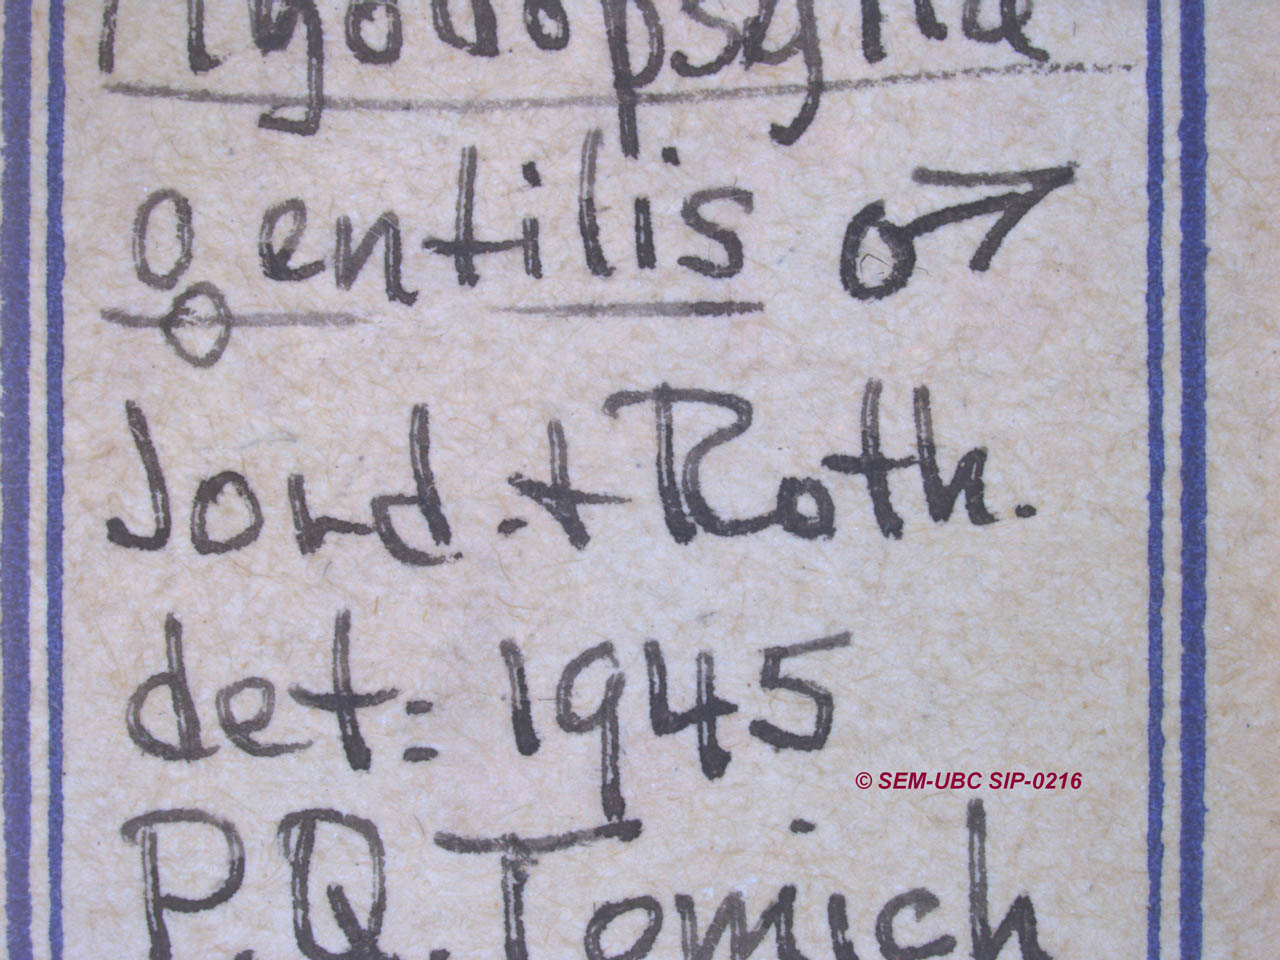 Myodopsylla
gentilis ♂
Jord. + Roth.
det: 1945
© SEM-UBC SIP-0216
P.Q. Tomich